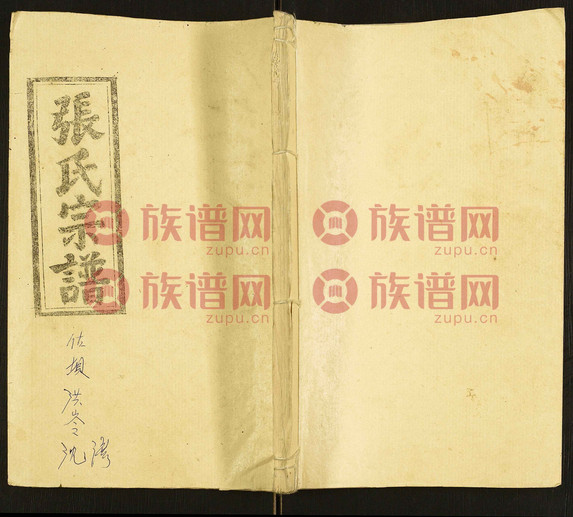 張氏宗譜
佐
洪岑
沈
族谱网
zupu.cn
族谱网
zupu.cn
族谱网
zupu.cn
族谱网
zupu.cn